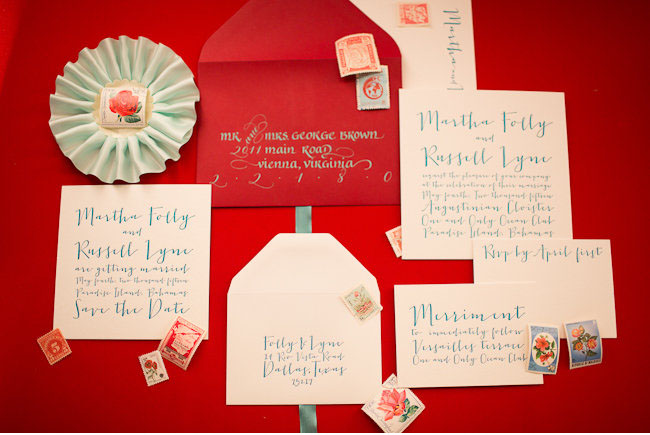 Mr. and Mrs. George Brown
2011 Main Road
Vienna, Virginia
22180
Martha Folly
and
Russell Lyne
request the pleasure of your company
at the celebration of their marriage
May fourth, two thousand fifteen
Augustinian Cloister
One and Only Ocean Club
Paradise Island, Bahamas
Rsvp by April first
Martha Folly
and
Russell Lyne
are getting married
May fourth, two thousand fifteen
Paradise Island, Bahamas
Save the Date
Folly & Lyne
Rio Vista Road
Dallas, Texas
Merriment
to immediately follow
Versailles terrace
One and Only Ocean Club